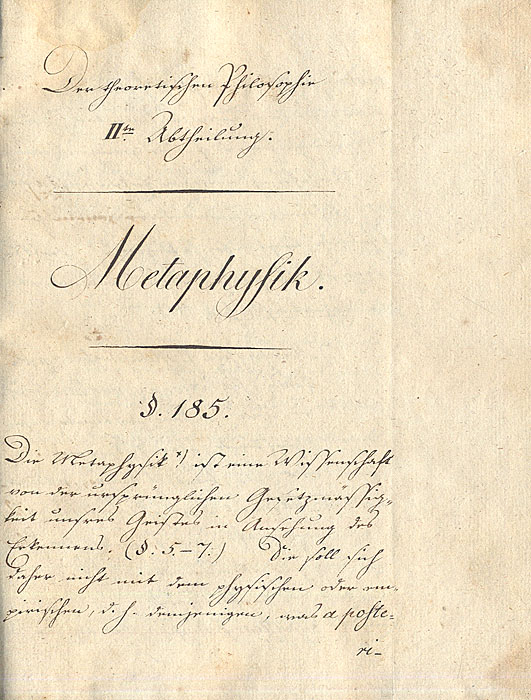 Der theoretischen Philosophie
IIte Abtheilung.
Metaphysik.
§. 185.
Die Metaphysik *) ist eine Wissenschaft
von der ursprünglichen Gesetzmässig-
keit unsres Geistes in Ansehung des
Erkennens. (§. 5–7.) Sie soll sich
daher nicht mit dem physischen oder em-
pirischen, d. h. demjenigen, was a poste-
ri-